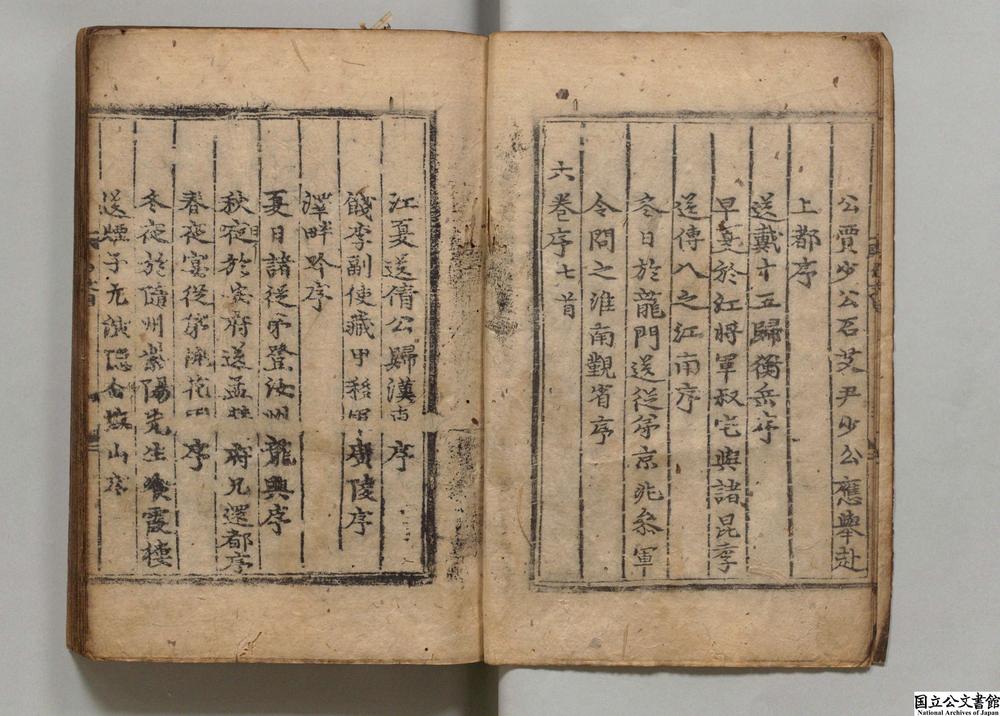 公賈少公石艾尹少公應舉赴
上都序
送戴十五歸衡岳序
早夏於江將軍叔宅與諸昆季
送傅八之江南序
冬日於龍門送從弟京兆參軍
令問之淮南覲省序
六卷序七首
江夏送倩公歸漢東序
餞李副使藏甲移軍廣陵序
澤畔吟序
夏日諸從弟登汝州龍興序
秋夜於安府送孟府兄還都序
春夜宴從弟桃花序
冬夜於隨州紫陽先生飡霞樓
送煙子元演隱仙城山序
国立公文書館
National Archives of Japan